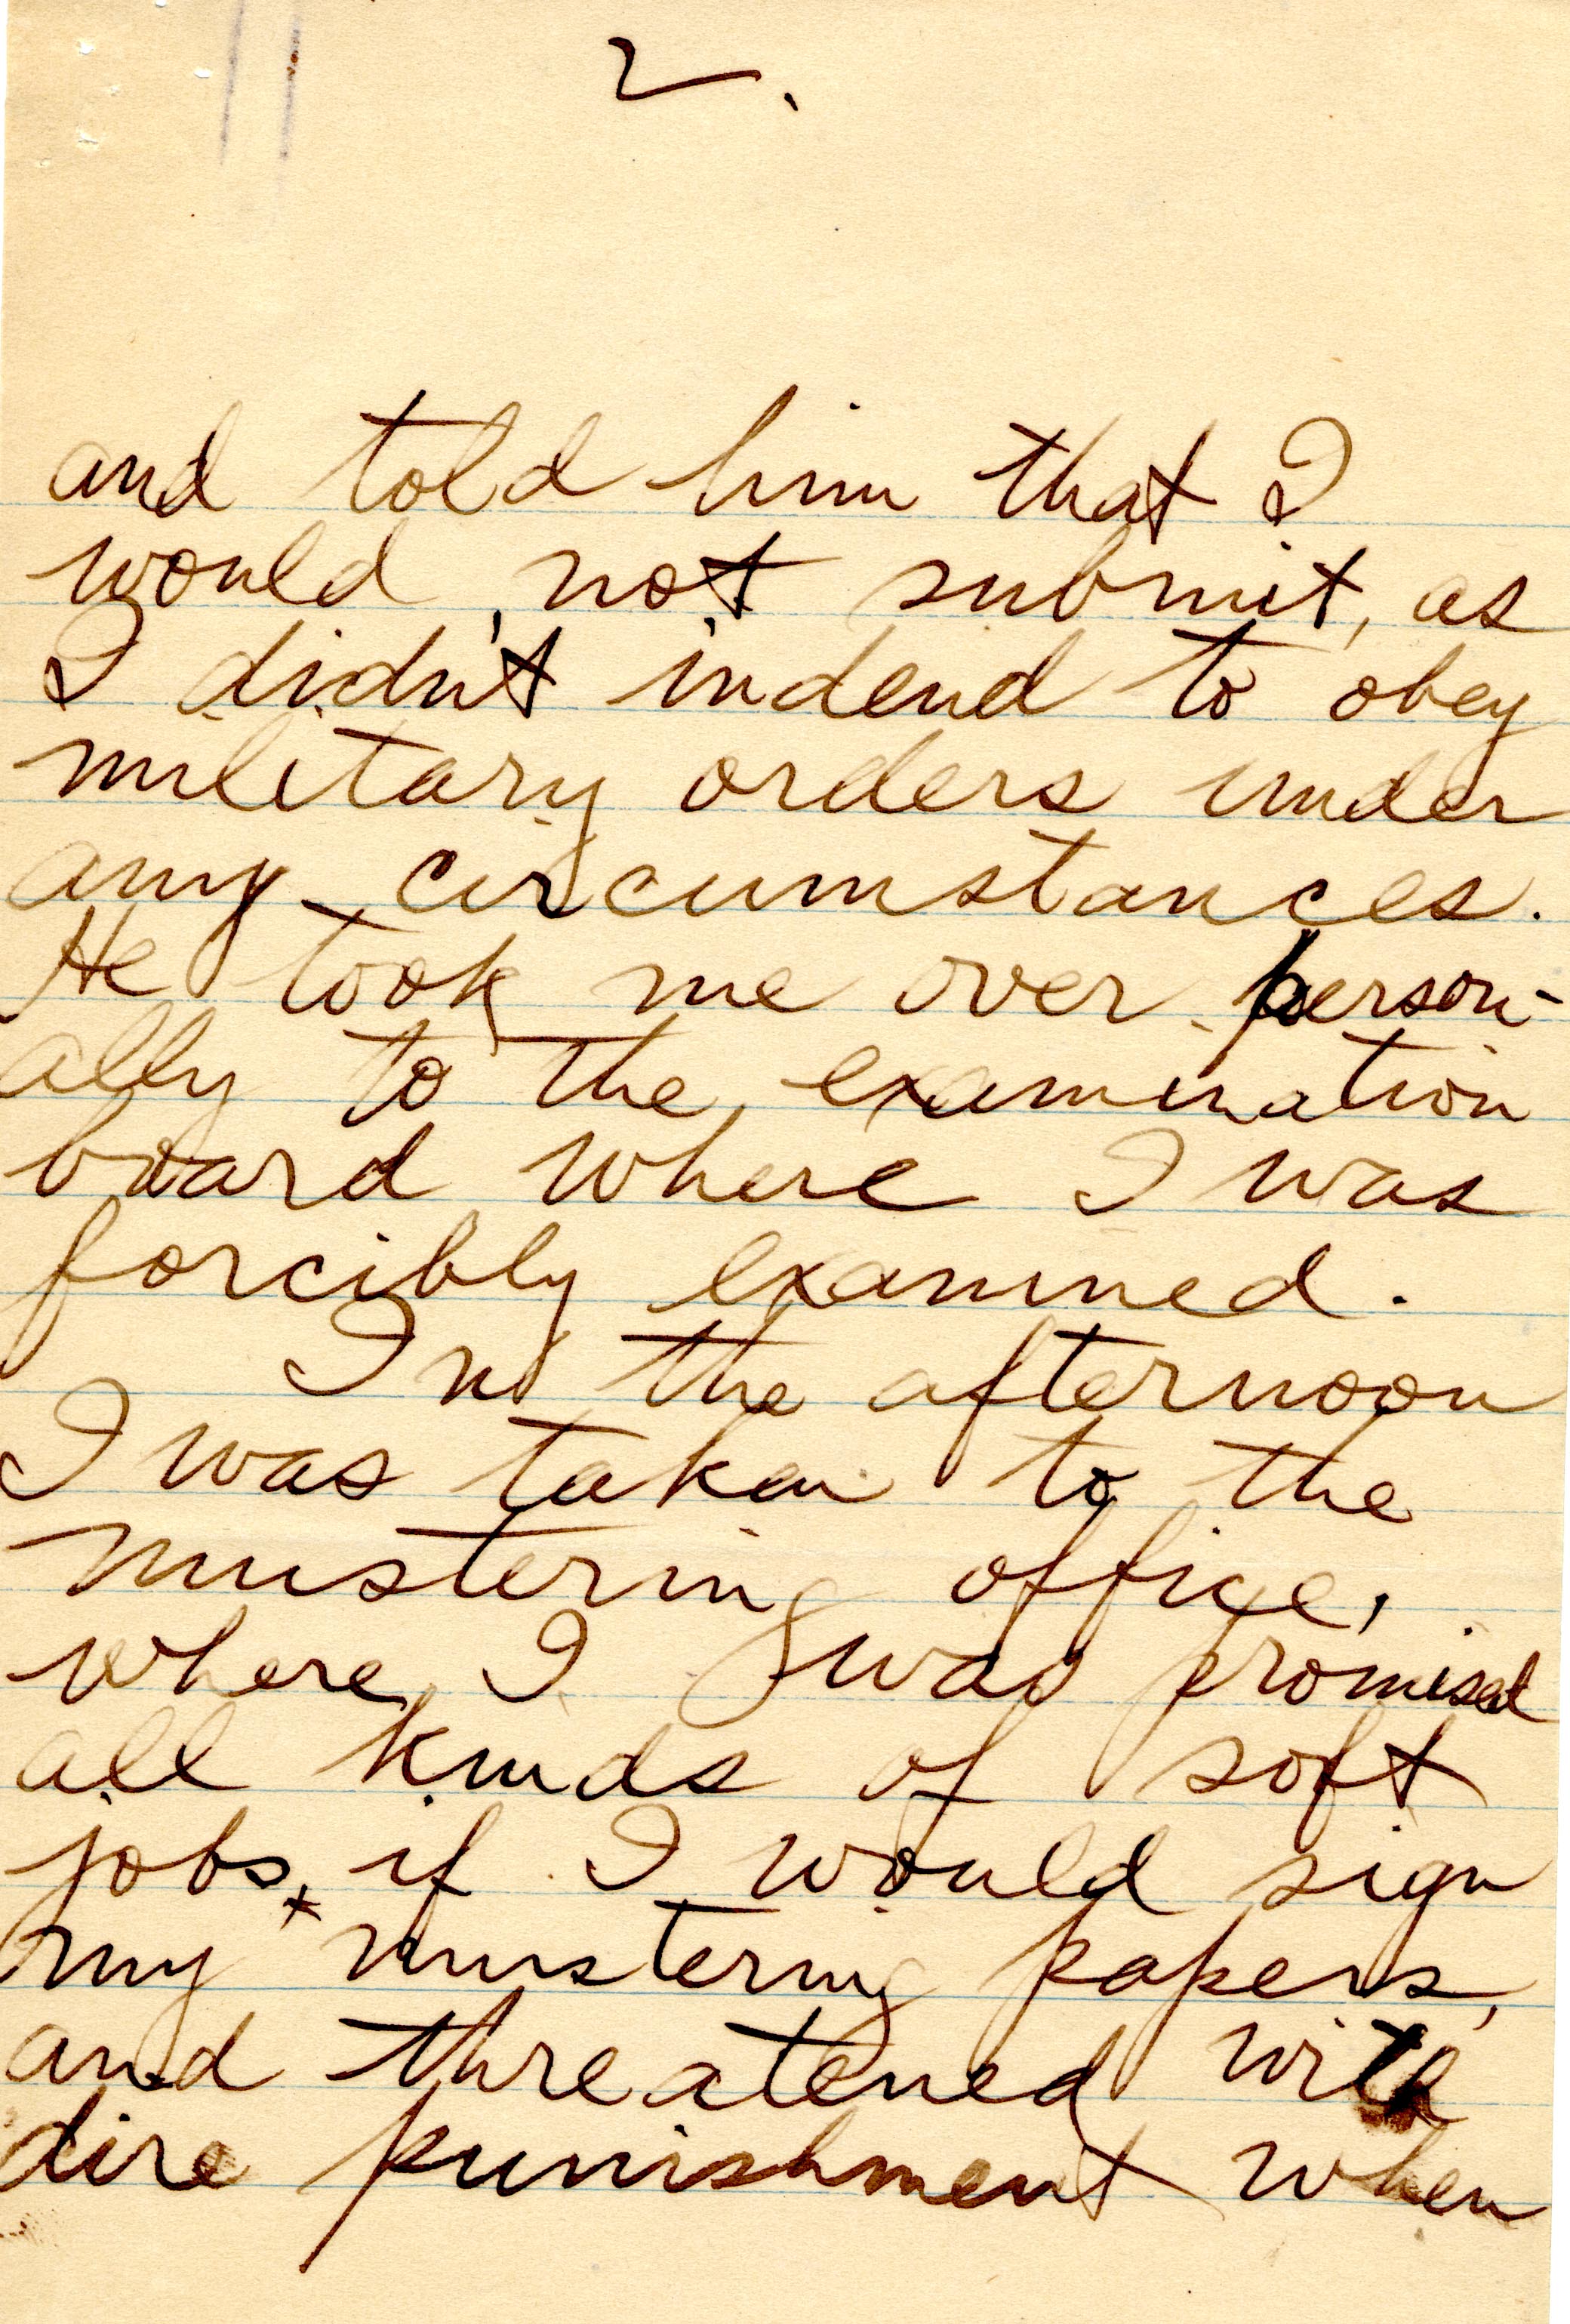 2.
and told him that I
would not submit, as
I didn't indend to obey
military orders under
any circumstances.
He took me over person-
ally to the examination
board where I was
forcibly examined.
In the afternoon
I was taken to the
mustering office,
where I was promised
all kinds of soft
jobs, if I would sign
my mustering papers,
and threatened with
dire punishment when